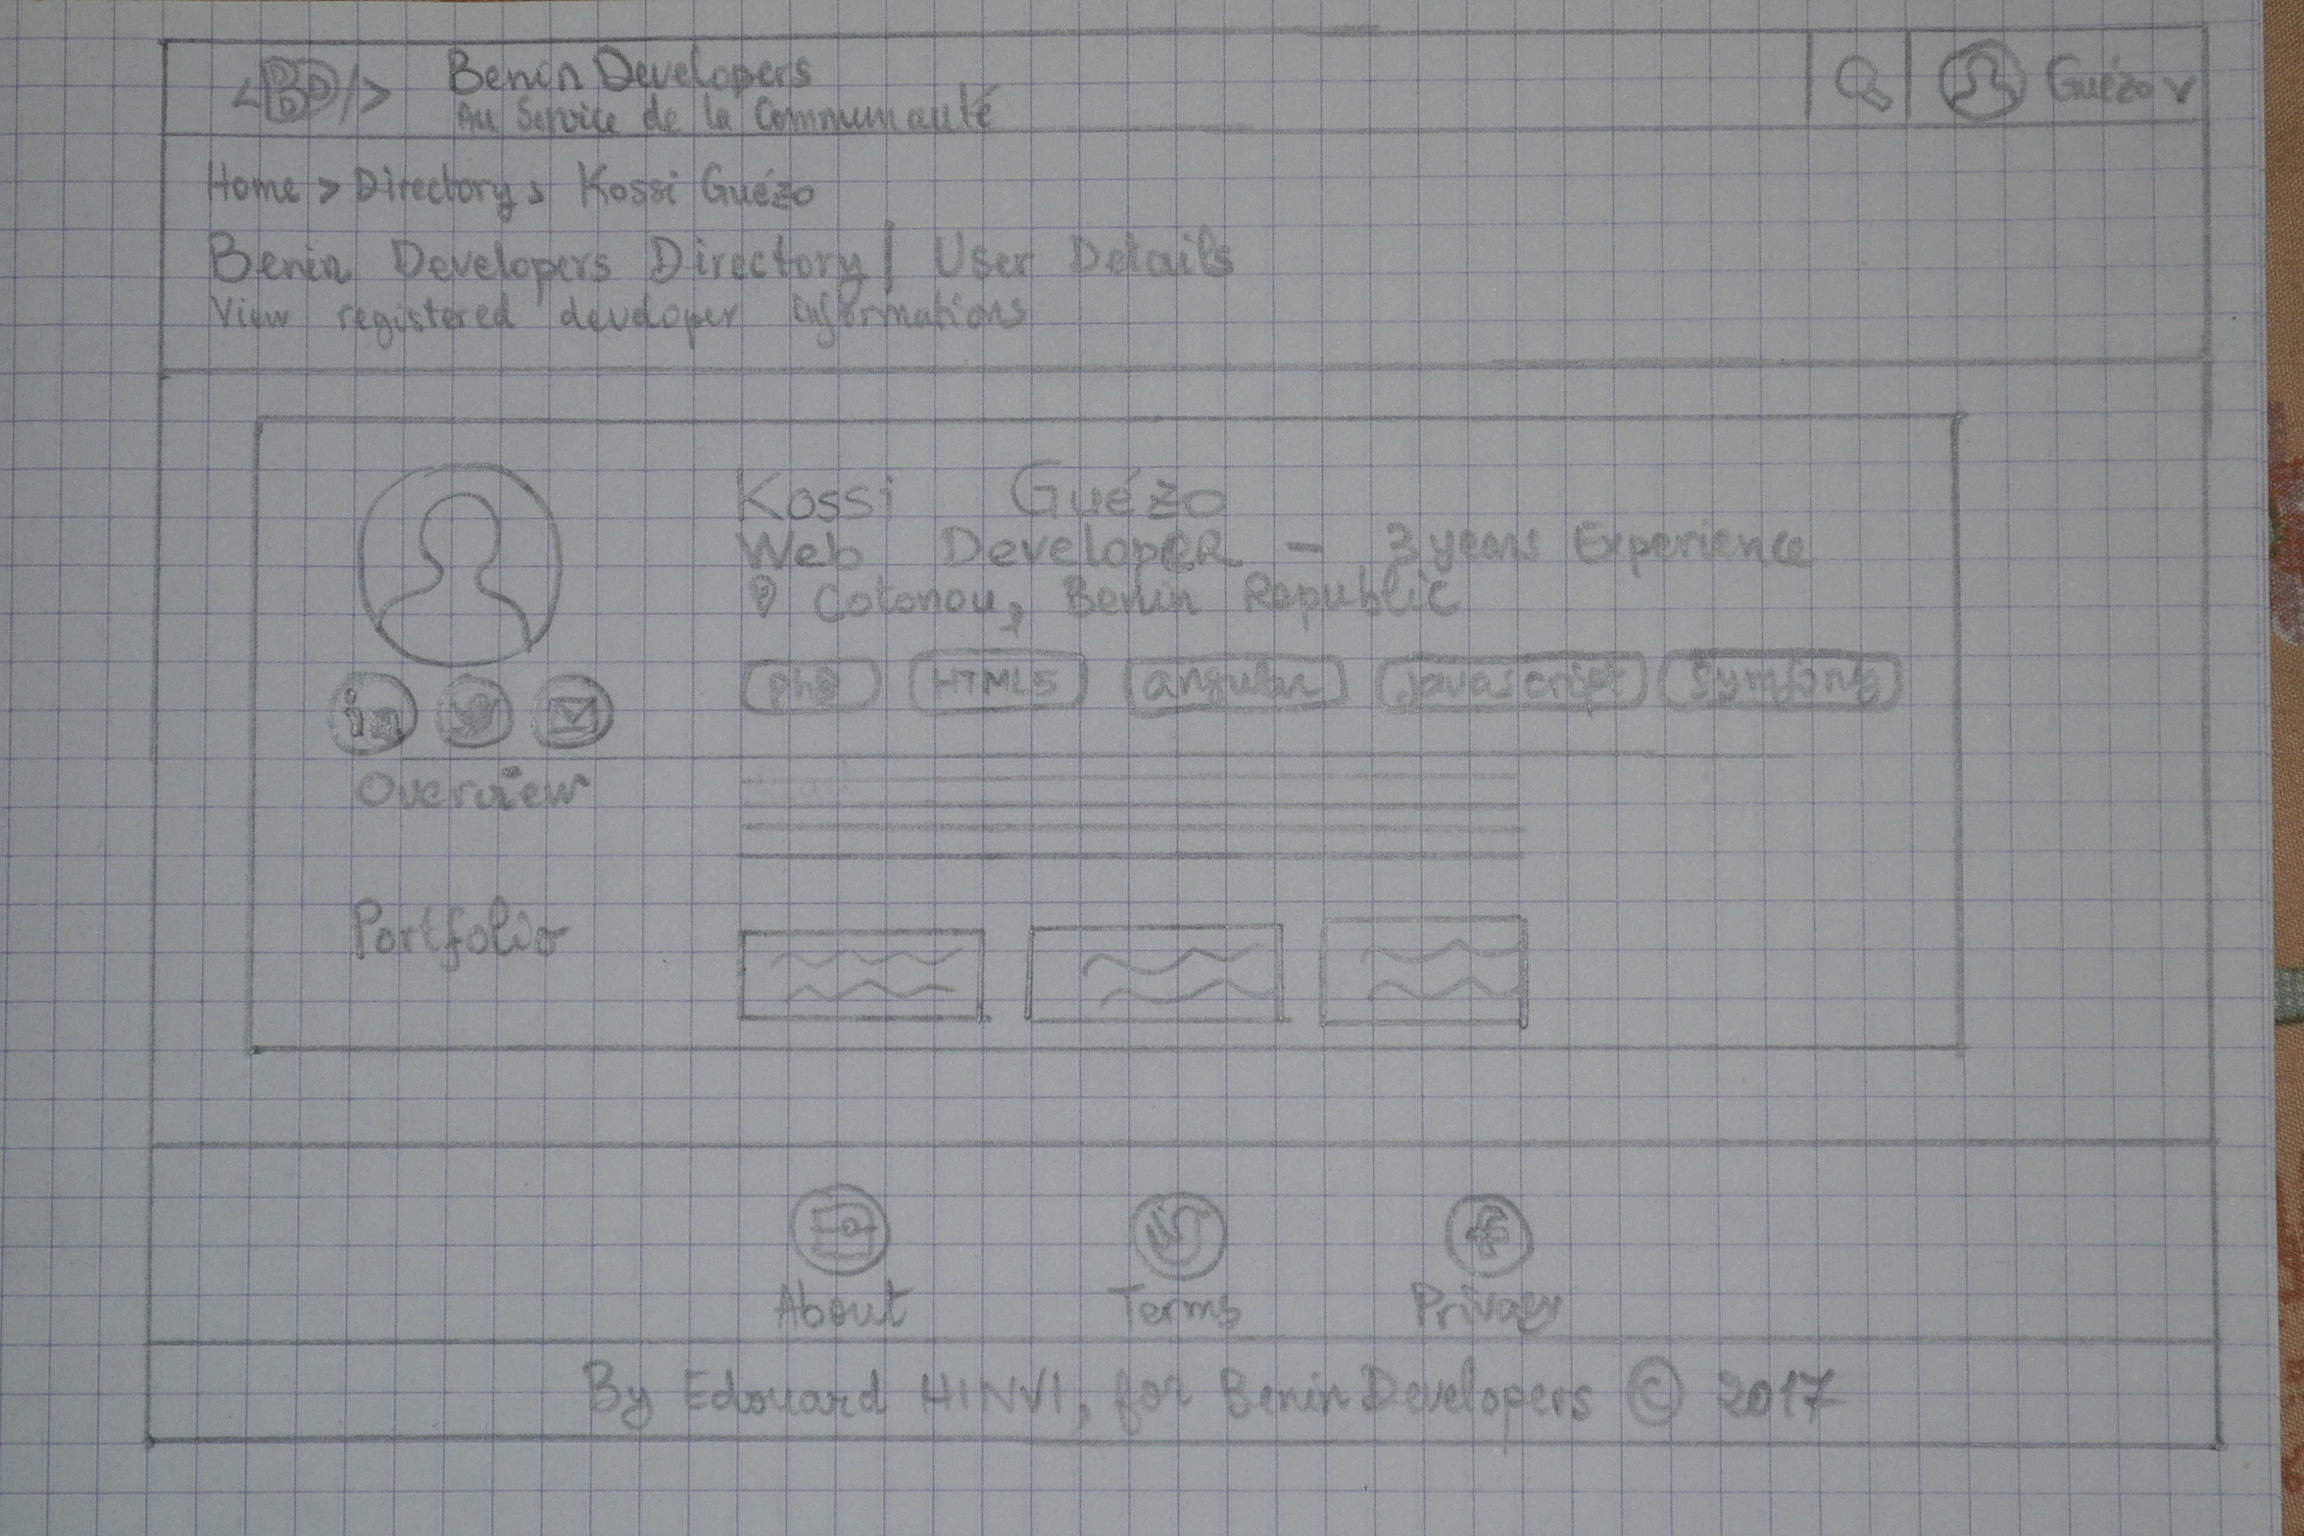 <BDD/> Benin Developers
Au Service de la Communauté
Guézo v
Home > Directory > Kossi Guézo
Benin Developers Directory | User Details
View registered developer informations
Kossi Guézo
Web Developer - 3 years Experience
Cotonou, Benin Republic
php HTML5 angular javascript Symfony
in
Overview
Portfolio
About Terms Privacy
By Edouard HINVI, for Benin Developers © 2017